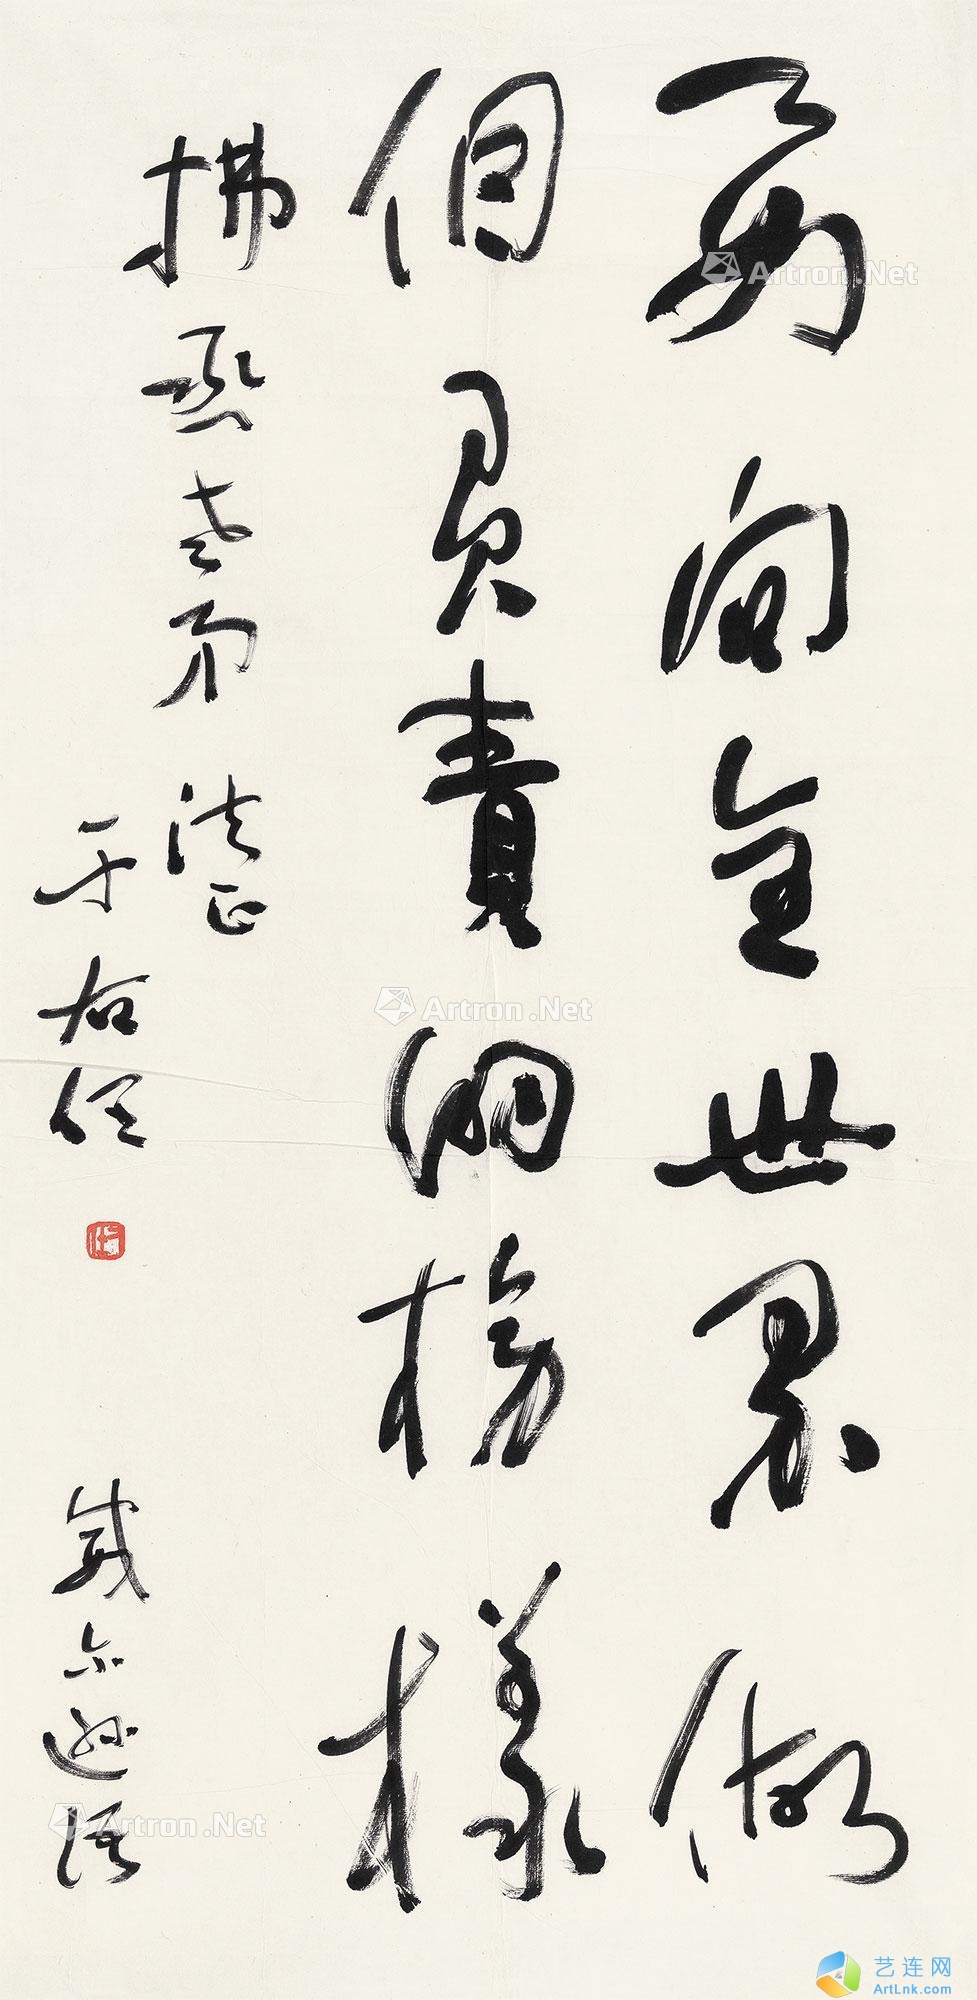 要向全世界做
個負責的榜樣
拂熙老弟 法正
于右任
戴尔遜語
Artron.Net
Artron.Net
Artron.Net
艺连网
ArtLnk.com